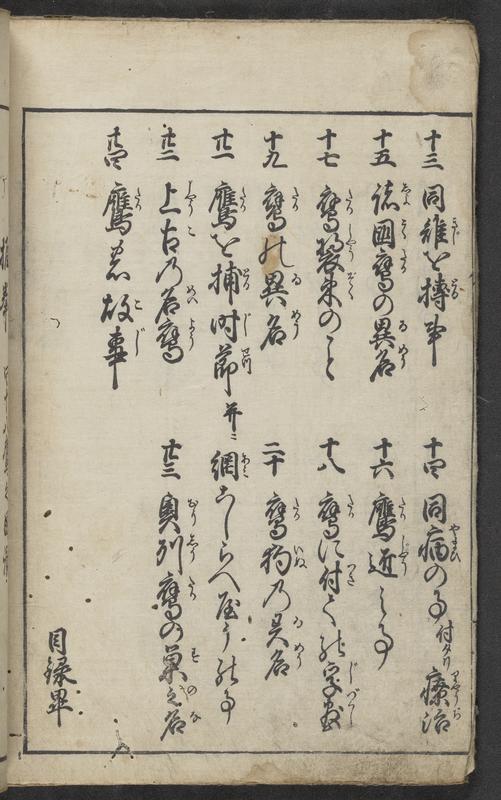 十三 同雉を摶事
十四 同病の事 付タリ療治
十五 諸国鷹の異名
十六 鷹近之事
十七 鷹装束のこと
十八 鷹に付ての字尽
十九 鷹の異名
二十 鷹狗乃異名
廿一 鷹を捕時節 并ニ網こしらへ屋うの事
廿二 上古乃名鷹
廿三 奥列鷹の巣之名
廿四 鷹若故事
目録畢